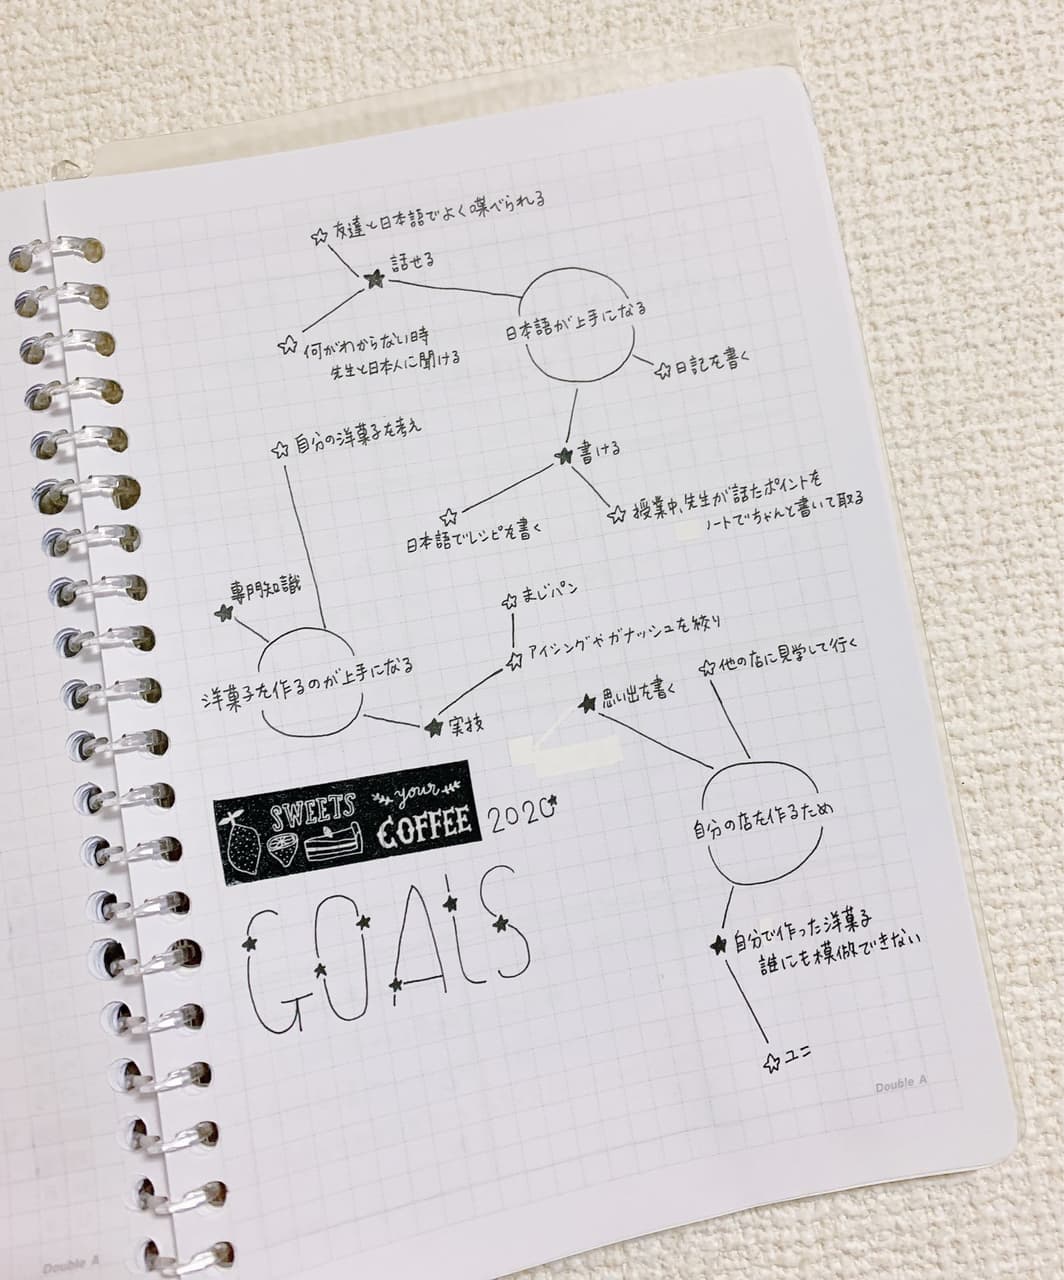 友達と日本語でよく喋べられる
話せる
何がわからない時
先生と日本人に聞ける
日本語が上手になる
日記を書く
書ける
日本語でレシピを書く
授業中、先生が話たポイントを
ノートでちゃんと書いて取る
自分の洋菓子を考え
専門知識
洋菓子を作るのが上手になる
実技
アイシングやガナッシュを絞り
まじパン
思い出を書く
他の店に見学して行く
自分の店を作るため
自分で作った洋菓子
誰にも模倣できない
ユニ
SWEETS
your
COFFEE
2020
GOALS
Double A
Double A